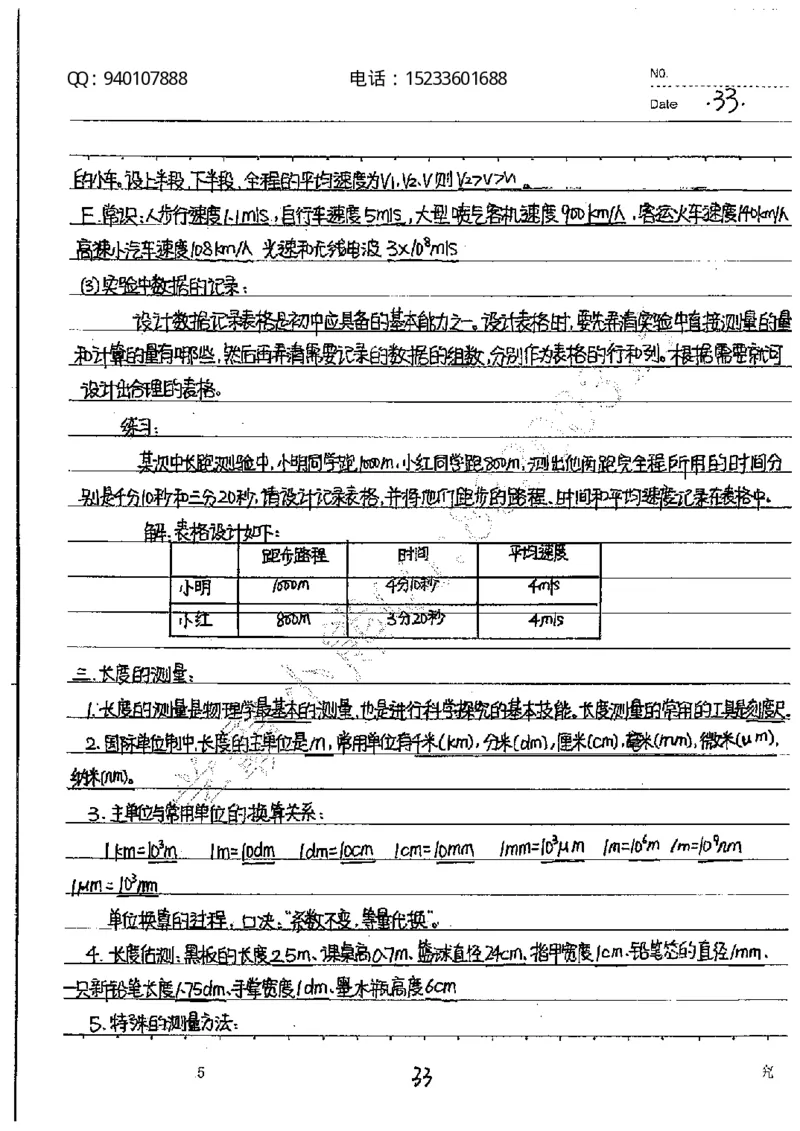 QQ：940107888 电话：15233601688 No.
Date ·33·
的小车。设上半段、下半段、全程的平均速度为V1、V2、V则V2>V>V1
E.常识：人步行速度1.1m/s，自行车速度5m/s，大型喷气客机速度900km/h，客运火车速度140km/h
高速小汽车速度108km/h 光速和无线电波 3×10⁸m/s
(3)实验中数据的记录：
设计数据记录表格是初中应具备的基本能力之一。设计表格时，要先弄清实验中直接测量的量
和计算的量有哪些，然后再弄清需要记录的数据的组数，分别作为表格的行和列。根据需要就可
设计出合理的表格。
练习：
某次中长跑测验中，小明同学跑1000m，小红同学跑800m，测出他俩跑完全程所用的时间分
别是4分10秒和三分20秒，请设计记录表格，并将他们跑步的路程、时间和平均速度记录在表格中。
解：表格设计如下：
跑步路程 时间 平均速度
小明 1000m 4分10秒 4m/s
小红 800m 3分20秒 4m/s
三.长度的测量：
1.长度的测量是物理学最基本的测量，也是进行科学探究的基本技能。长度测量的常用的工具是刻度尺。
2.国际单位制中，长度的主单位是m，常用单位有千米(km)，分米(dm)，厘米(cm)，毫米(mm)，微米(μm)，
纳米(nm)。
3.主单位与常用单位的换算关系：
1km=10³m 1m=10dm 1dm=10cm 1cm=10mm 1mm=10³μm 1m=10⁶m 1m=10⁹nm
1μm=10³nm
单位换算的过程，口决：“系数不变，等量代换”。
4.长度估测：黑板的长度2.5m、课桌高0.7m、篮球直径24cm、指甲宽度1cm、铅笔芯的直径1mm、
一只新铅笔长度1.75dm、手掌宽度1dm、墨水瓶高度6cm
5.特殊的测量方法：
5 33 究